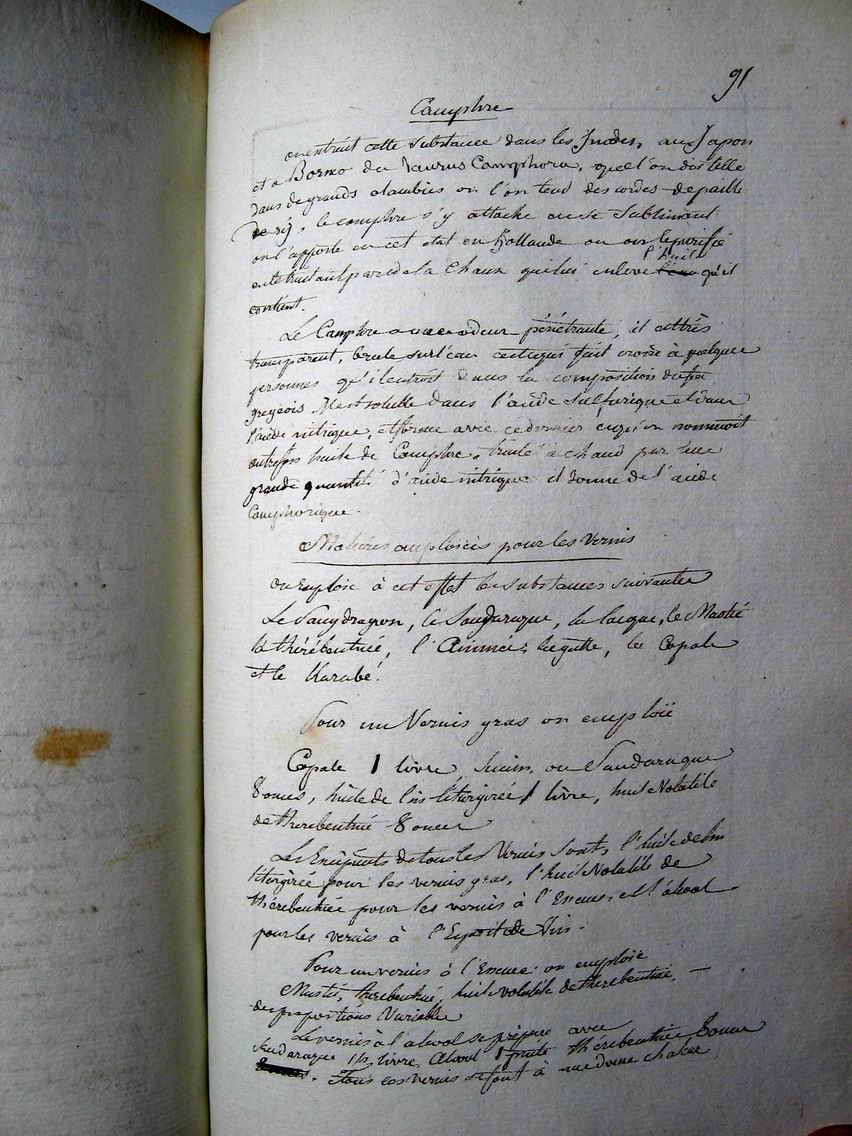 91
Camphre
on extrait cette substance dans les Indes, au Japon
et a Borneo du Laurus Camphora, que l'on distelle
dans de grands alambics ou l'on tend des cordes de paille
de ris, le camphre s'y attache en se sublimant
on l'apporte en cet état en hollande ou on le purifie
l'huile
en le traitant par de la chaux qui lui enleve l'eau qu'il
contient.
Le Camphre a une odeur pénétrante, il est très
transparent, brule sur l'eau ce qui a fait croire à quelque
personnes qu'il entroit dans la composition du feu
gregeois Il est soluble dans l'acide sulfurique et dans
l'acide nitrique, et forme avec ce dernier ce qu'on nommoit
autrefois huile de Camphre, traité à chaud par une
grande quantité d'acide nitrique il donne de l'acide
Camphorique.
Matières emploiées pour les Vernis
on Emploie à cet effet les substances suivantes
Le Sangdragon, le Sandaraque, la lacque, le Mastic
la thérébentine, l'Animée, la gutte, la Copale
et le Karabé.
Pour un Vernis gras on emploïe
Copale 1 livre, Sucin, ou Sandaraque
8 onces, huile de lin liturgirée 1 livre, huile Volatile
de therebentine 8 onces
Les Excipients de tous les Vernis sont, l'huile de lin
liturgirée pour les vernis gras, l'huile Volatile de
thérébentine pour les vernis à l'Essence, et l'alcool
pour les vernis à l'Esprit de Vin.
Pour un vernis à l'Essence on emploie
Mastic, thérébentine, huile volatile de therebentine, —
des proportions Variable
Le vernis à l'alcool se prépare avec
Sandaraque 1/2 livre, Alcool 1 pinte thérébentine 8 onces
. Tous ces vernis se font à une douce chaleur